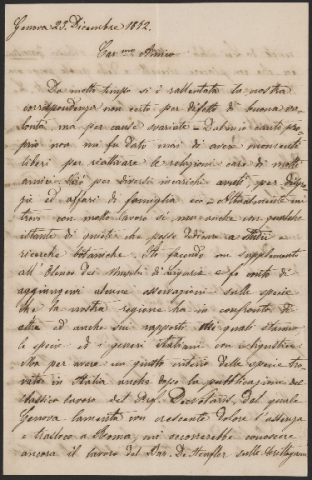 Genova 23. Dicembre 1872.
Car.mo Amico
Da molto tempo si è rallentata la nostra
corrispondenza non certo per difetto di buona vo-
lontà, ma per cause svariate. Dal mio canto pro-
prio non mi fu dato mai di avere momenti
liberi per riattivare le relazioni care di molti
amici. Ciò per diversi incarichi avuti, per disgra-
zie ed affari di famiglia ecc. Attualmente mi
trovo con molto lavoro sì, ma anche con qualche
istante di quiete che posso dedicare a studii e
ricerche botaniche. Sto facendo un supplemento
all' Elenco dei Muschi di Liguria e fo conto di
aggiungervi alcune osservazioni sulle specie
che la nostra regione ha in confronto di
altre ed anche sui rapporti nei quali stanno
le specie ed i generi italiani con i liguri
Ma per avere un giusto criterio delle specie tro-
vate in Italia anche dopo la pubblicazione del
classico lavoro del Prof. De Notaris, del quale
Genova lamenta con crescente dolore l'assenza
e trasloco a Roma, mi occorrerebbe conoscere
ancora il lavoro del Bar. De Heufler sulle Crittogame